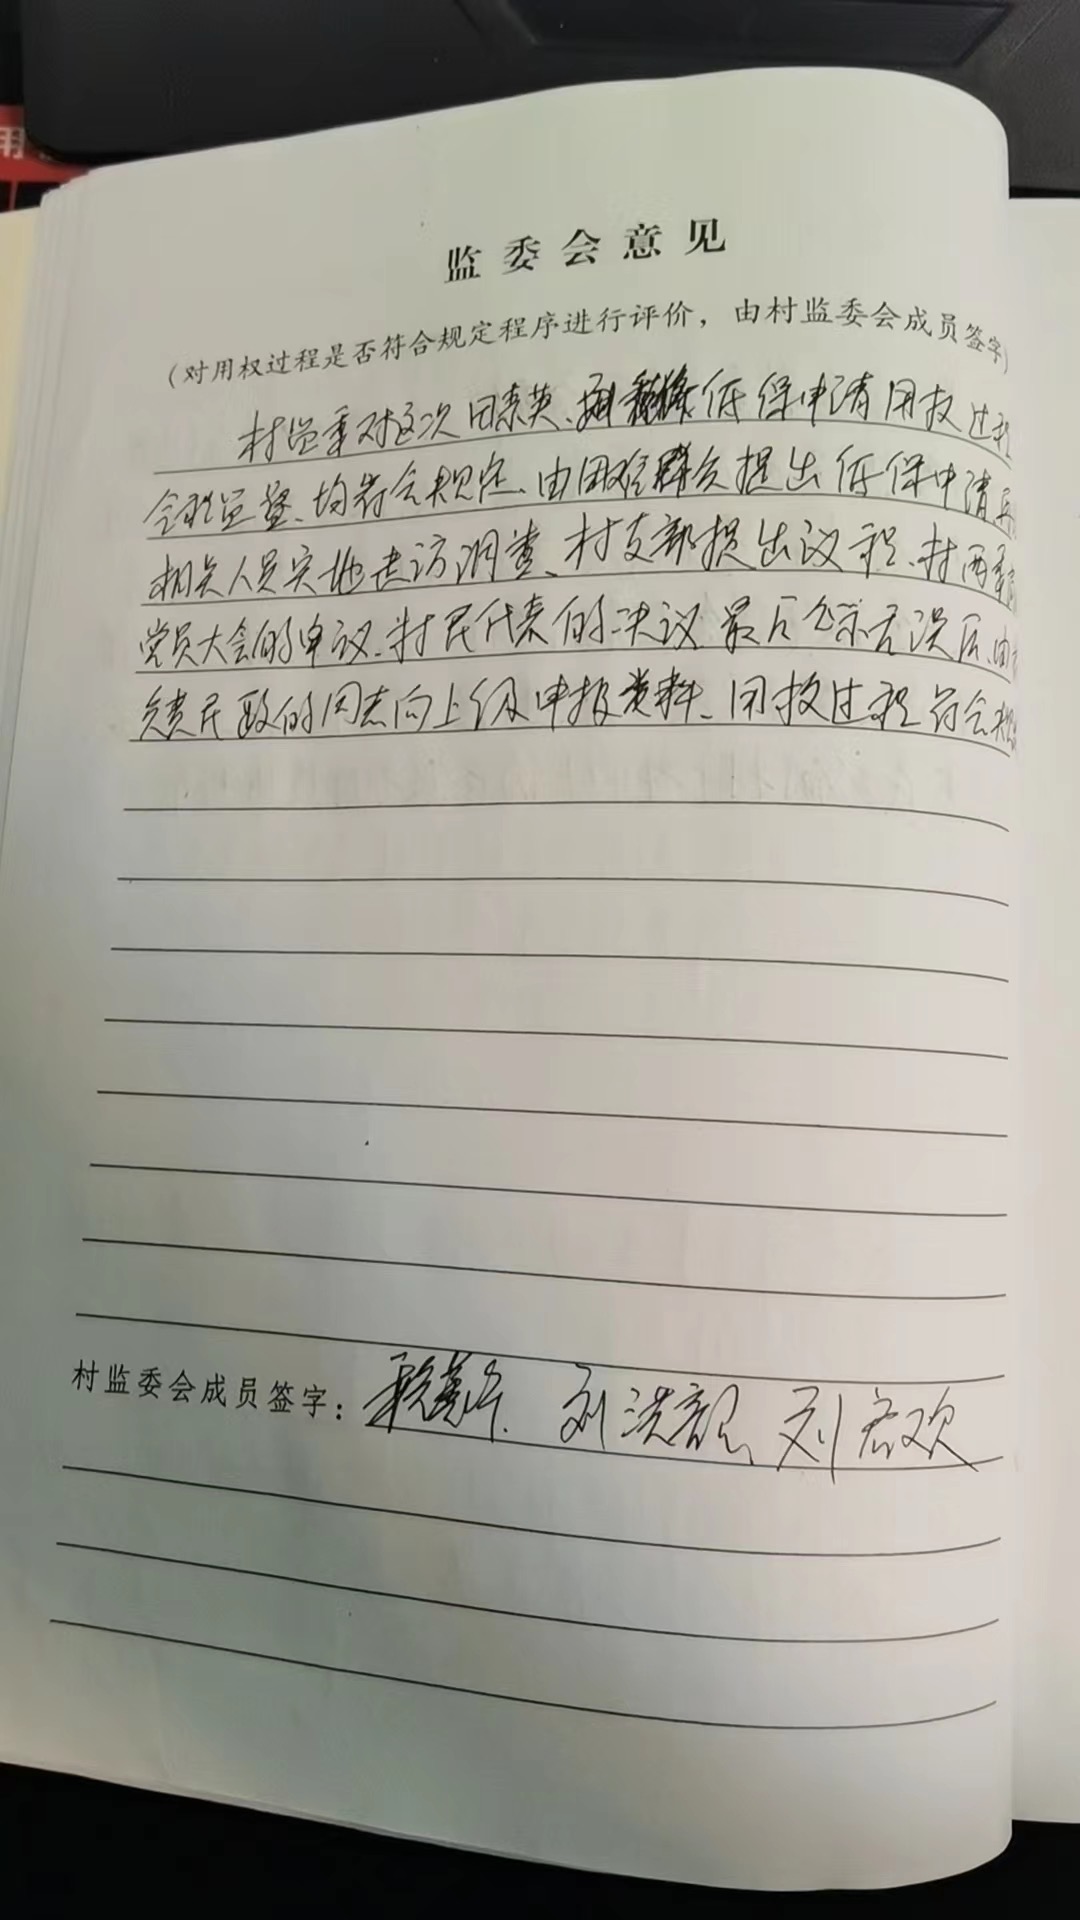 用
监委会意见
(对用权过程是否符合规定程序进行评价，由村监委会成员签字)
村监委对这次田素英、低保申请用权过程
全程监督、均符合规定、由困难群众提出低保申请
相关人员实地走访调查、村支部提出议程、村两委
党员大会的审议、村民代表的决议、最后公示无误后、由
负责民政的同志向上级申报资料、用权过程符合规
村监委会成员签字：刘洪 刘欢